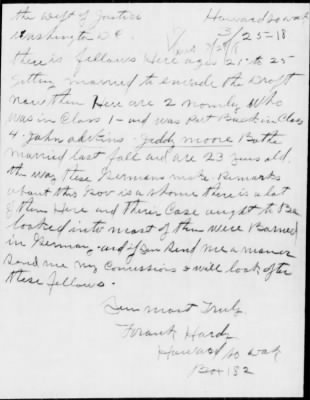 the Dept of Justice Howard so dak
Washington D.C. 3/25-18
there is fellows Here ages 21 to 25
getting married to evade the Draft
now then Here are 2 nomly Who
was in Class 1 - and was Put Back in Class
4 - John adkins - Jeddy moore Bothe
married last fall and are 23 years old.
the way these Germans make Remarks
about this Gov is a shame there is a lot
of them Here and their Case ought to Be
looked into most of them were Borned
in Germany - and if you send me a
send me my Comissions & will look after
these fellows.
Your most Truly
Frank Hardy
Howard so dak
Box 132